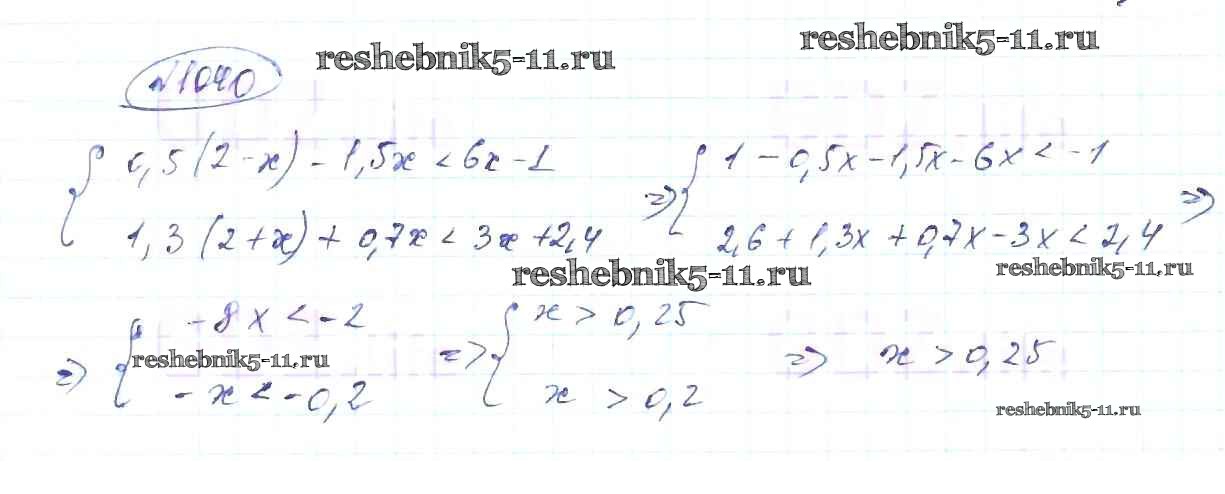 reshebnik5-11.ru
reshebnik5-11.ru
№1040
{ 0,5(2-x) - 1,5x < 6x - 1
1,3(2+x) + 0,7x < 3x + 2,4
=> { 1 - 0,5x - 1,5x - 6x < -1
2,6 + 1,3x + 0,7x - 3x < 2,4 =>
reshebnik5-11.ru
reshebnik5-11.ru
=> { -8x < -2
- x < -0,2
reshebnik5-11.ru
=> { x > 0,25
x > 0,2
=> x > 0,25
reshebnik5-11.ru